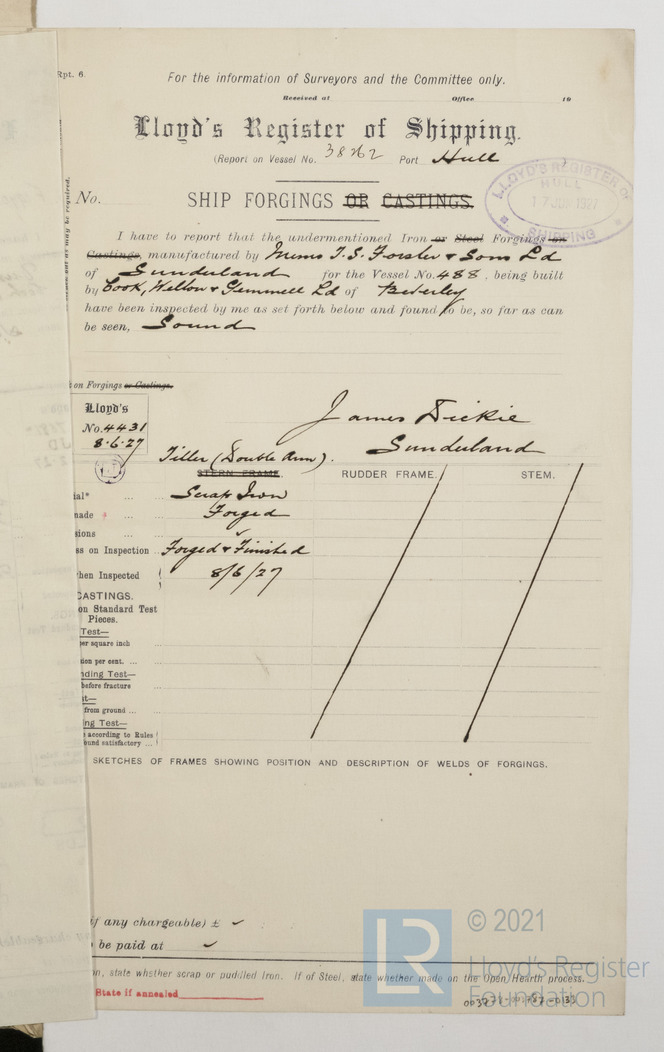 Rpt. 6.
For the information of Surveyors and the Committee only.
Received at Office 19
Lloyd's Register of Shipping.
(Report on Vessel No. 38262 Port Hull
No.
SHIP FORGINGS OR CASTINGS.
LLOYD'S REGISTER OF
HULL
17 JUN 1927
SHIPPING
I have to report that the undermentioned Iron or Steel Forgings or
Castings, manufactured by Messrs T. S. Forster & Sons Ld
of Sunderland for the Vessel No. 488, being built
by Cook, Welton & Gemmell Ld of Beverley
have been inspected by me as set forth below and found to be, so far as can
be seen, Sound
on Forgings or Castings.
Lloyd's
No. 4431
8.6.27
James Dickie
Sunderland
Tiller (Double Arm).
STERN FRAME. RUDDER FRAME. STEM.
ial* ... Scrap Iron
made ... Forged
sions ...
ss on Inspection Forged & Finished
hen Inspected 8/6/27
CASTINGS.
on Standard Test
Pieces.
Test—
per square inch
ion per cent. ...
nding Test—
before fracture
st—
from ground ...
ng Test—
according to Rules
ound satisfactory ...
SKETCHES OF FRAMES SHOWING POSITION AND DESCRIPTION OF WELDS OF FORGINGS.
if any chargeable) £ ✓
be paid at ✓
on, state whether scrap or puddled Iron. If of Steel, state whether made on the Open Hearth process.
State if annealed
LR © 2021
Lloyd's Register
Foundation